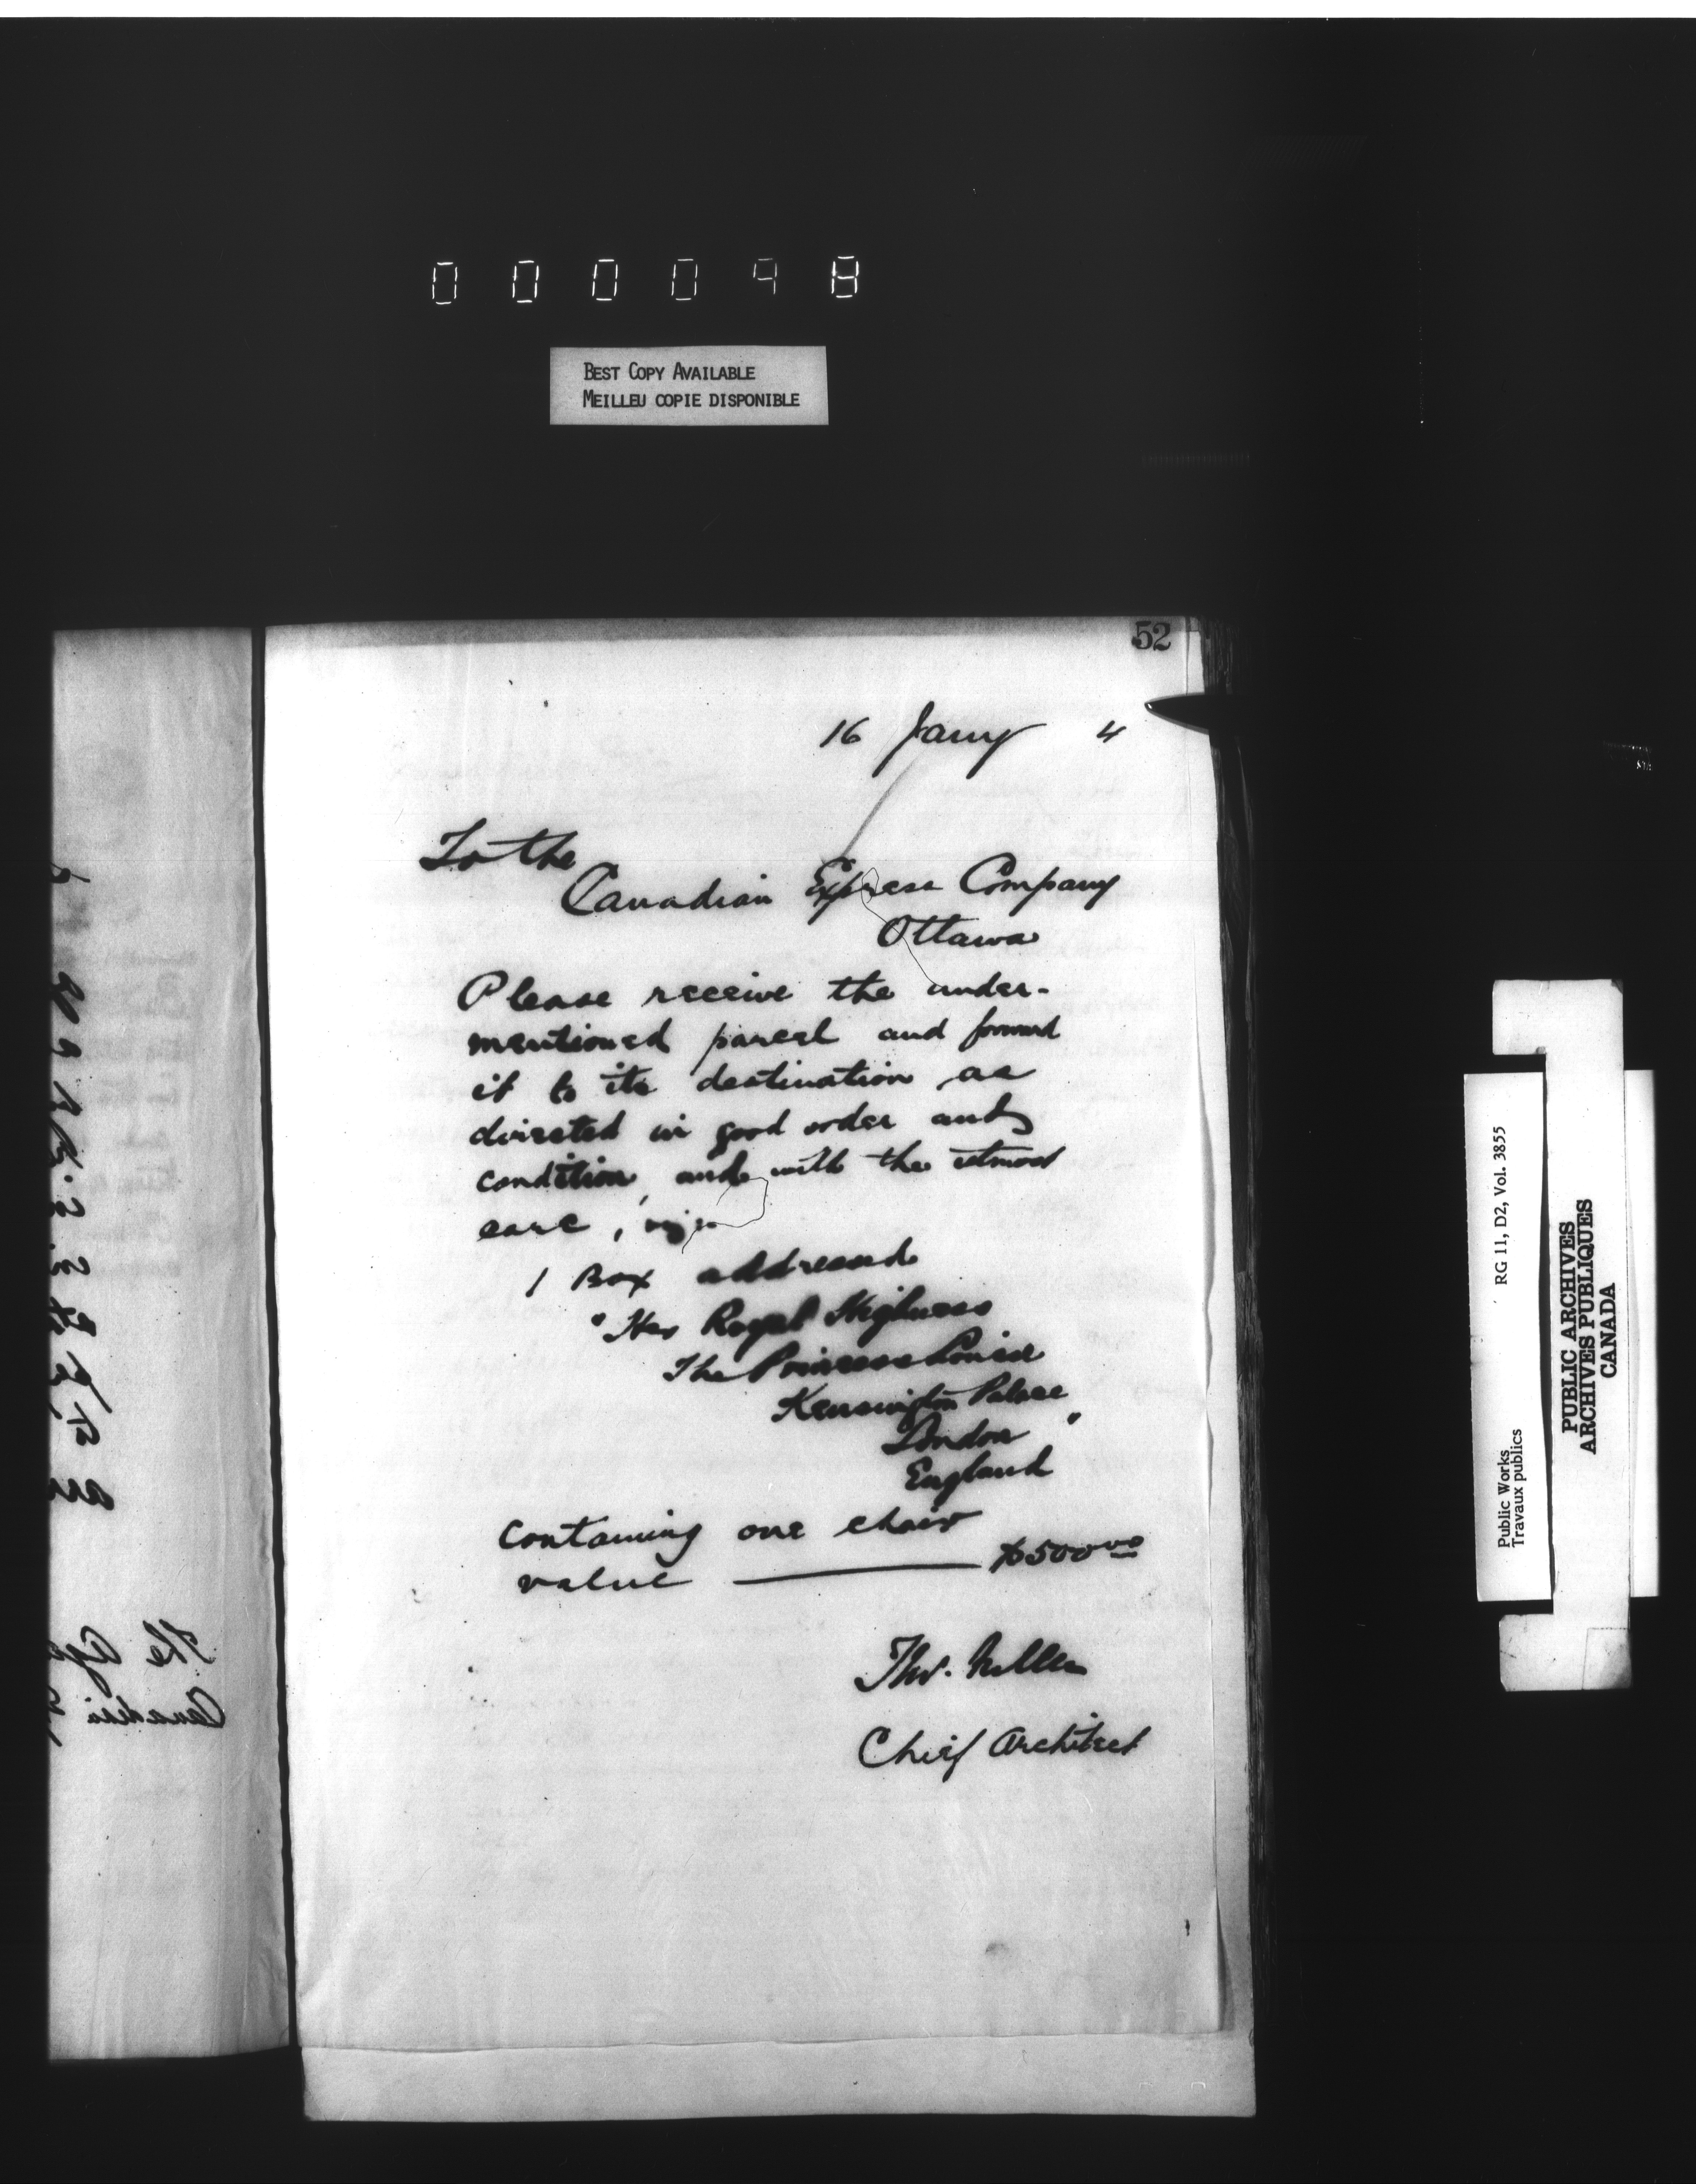 000098
BEST COPY AVAILABLE
MEILLEU COPIE DISPONIBLE
52
16 Jany 4
To the
Canadian Express Company
Ottawa
Please receive the under-
mentioned parcel and forward
it to its destination as
directed in good order and
condition, and with the utmost
care, viz
1 Box addressed
"Her Royal Highness
The Princess Louise
Kensington Palace
London "
England
containing one chair
value — $500 00
Thos. Fuller
Chief Architect
RG 11, D2, Vol. 3855
Public Works
Travaux publics
PUBLIC ARCHIVES
ARCHIVES PUBLIQUES
CANADA
The
Canadian